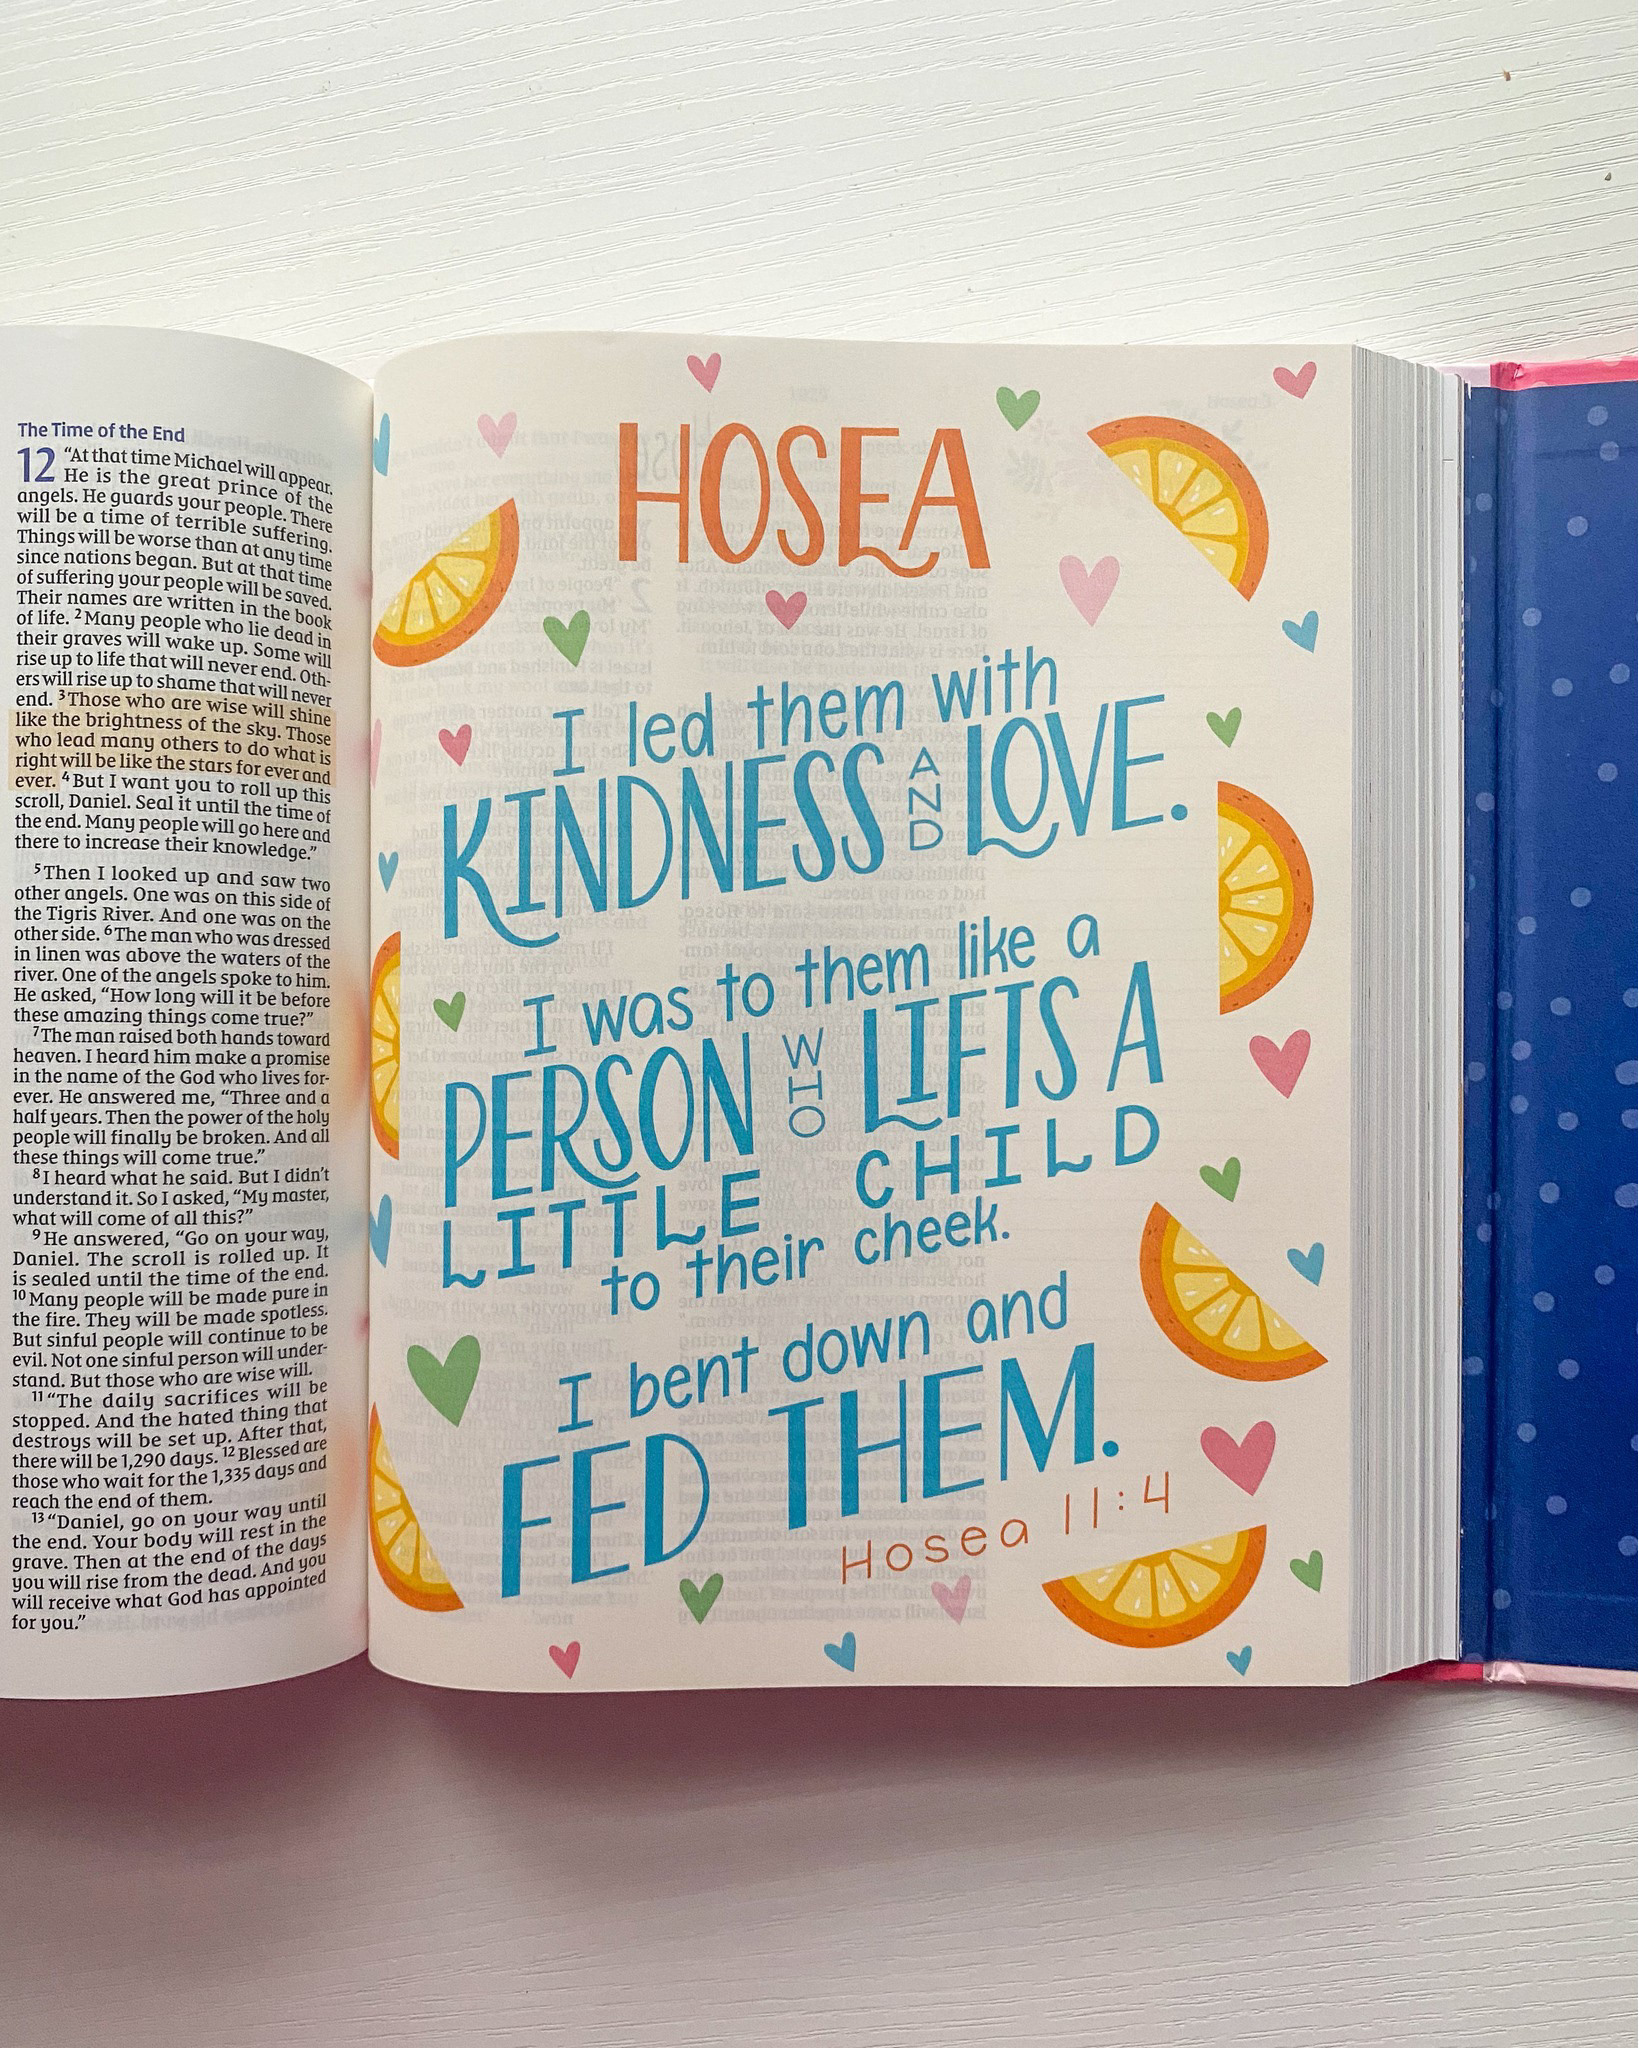 The Time of the End
12 “At that time Michael will appear.
He is the great prince of the
angels. He guards your people. There
will be a time of terrible suffering.
Things will be worse than at any time
since nations began. But at that time
of suffering your people will be saved.
Their names are written in the book
of life. 2 Many people who lie dead in
their graves will wake up. Some will
rise up to life that will never end. Oth-
ers will rise up to shame that will never
end. 3 Those who are wise will shine
like the brightness of the sky. Those
who lead many others to do what is
right will be like the stars for ever and
ever. 4 But I want you to roll up this
scroll, Daniel. Seal it until the time of
the end. Many people will go here and
there to increase their knowledge.”
5 Then I looked up and saw two
other angels. One was on this side of
the Tigris River. And one was on the
other side. 6 The man who was dressed
in linen was above the waters of the
river. One of the angels spoke to him.
He asked, “How long will it be before
these amazing things come true?”
7 The man raised both hands toward
heaven. I heard him make a promise
in the name of the God who lives for-
ever. He answered me, “Three and a
half years. Then the power of the holy
people will finally be broken. And all
these things will come true.”
8 I heard what he said. But I didn’t
understand it. So I asked, “My master,
what will come of all this?”
9 He answered, “Go on your way,
Daniel. The scroll is rolled up. It
is sealed until the time of the end.
10 Many people will be made pure in
the fire. They will be made spotless.
But sinful people will continue to be
evil. Not one sinful person will under-
stand. But those who are wise will.
11 “The daily sacrifices will be
stopped. And the hated thing that
destroys will be set up. After that,
there will be 1,290 days. 12 Blessed are
those who wait for the 1,335 days and
reach the end of them.
13 “Daniel, go on your way until
the end. Your body will rest in the
grave. Then at the end of the days
you will rise from the dead. And you
will receive what God has appointed
for you.”
HOSEA
I led them with
KINDNESS AND LOVE.
I was to them like a
PERSON WHO LIFTS A
LITTLE CHILD
to their cheek.
I bent down and
FED THEM.
Hosea 11:4